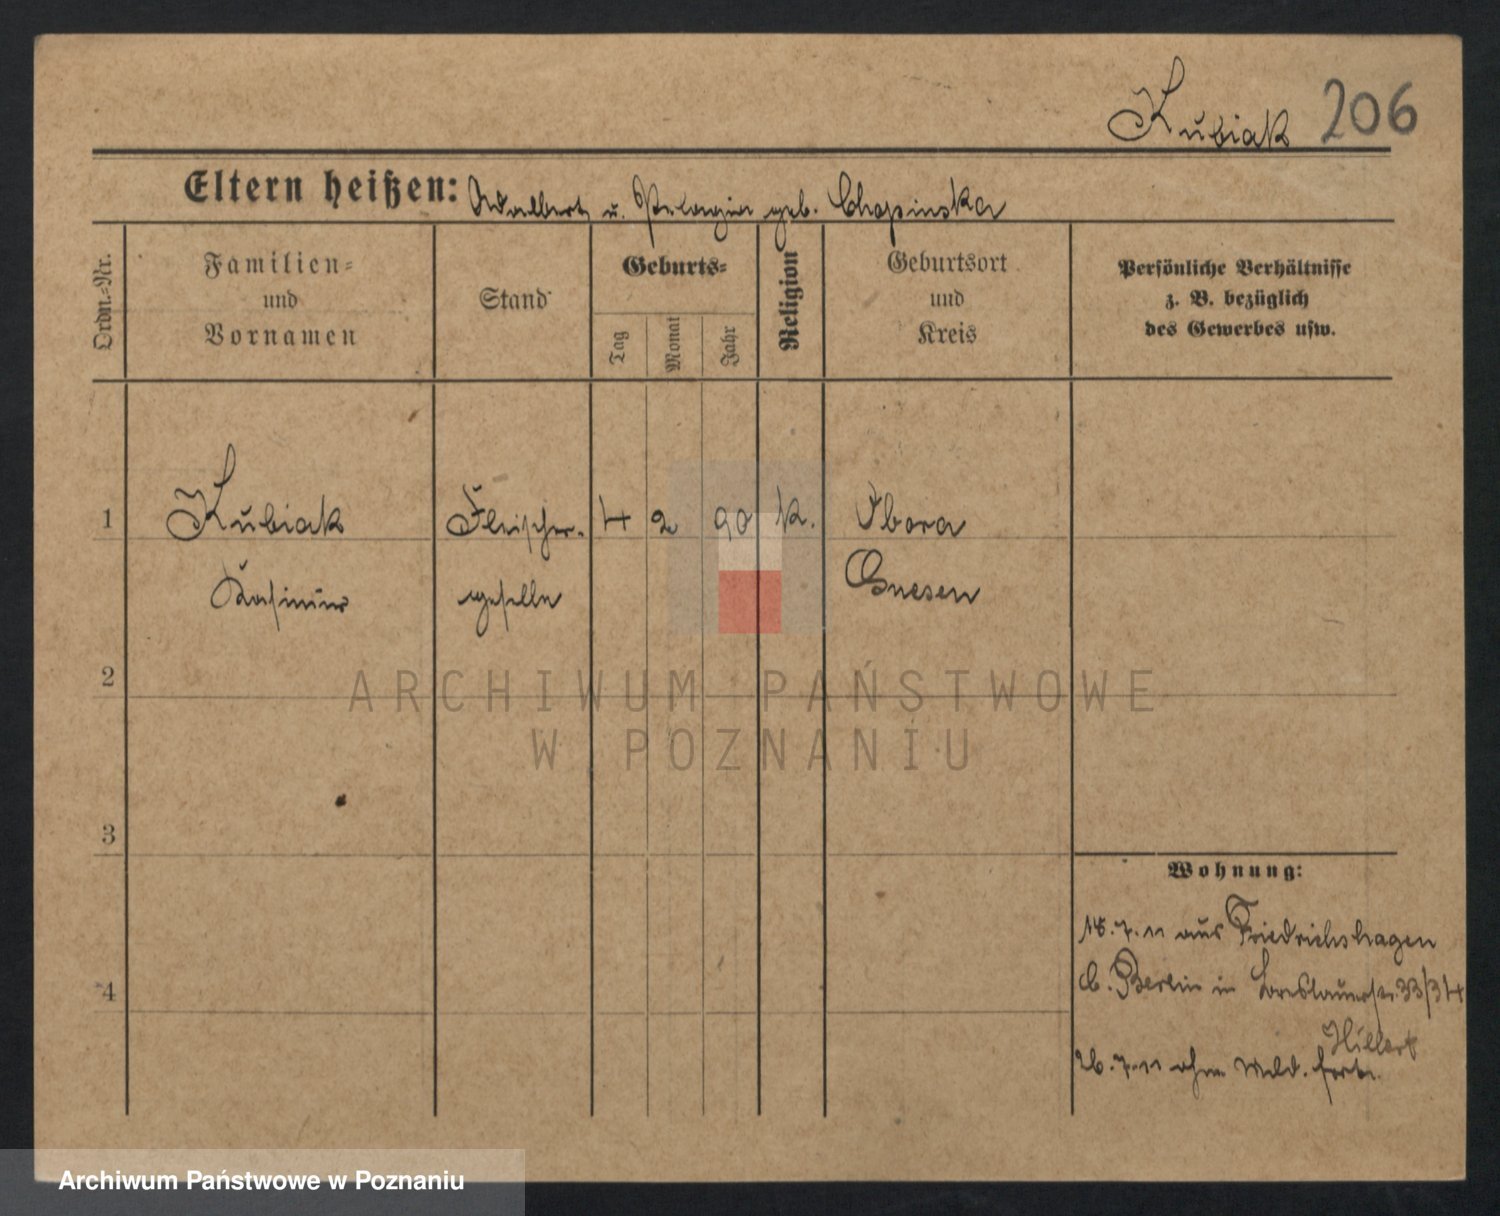 Kubiak 206
Eltern heißen: Adalbert u. Pelagia geb. Chopinska
Ordn.-Nr.
Familien-
und
Vornamen
Stand
Geburts-
Tag
Monat
Jahr
Religion
Geburtsort
und
Kreis
Persönliche Verhältnisse
z. B. bezüglich
des Gewerbes usw.
1 Kubiak Fleischer- 4 2 90 k. Obora
Kasimir geselle Gnesen
2
ARCHIWUM PAŃSTWOWE
W POZNANIU
3
Wohnung:
18.7.11 aus Friedrichshagen
b. Berlin in Breslauerstr. 33/34
4
Hillert
26.7.11 ohne Meld. fort.
Archiwum Państwowe w Poznaniu